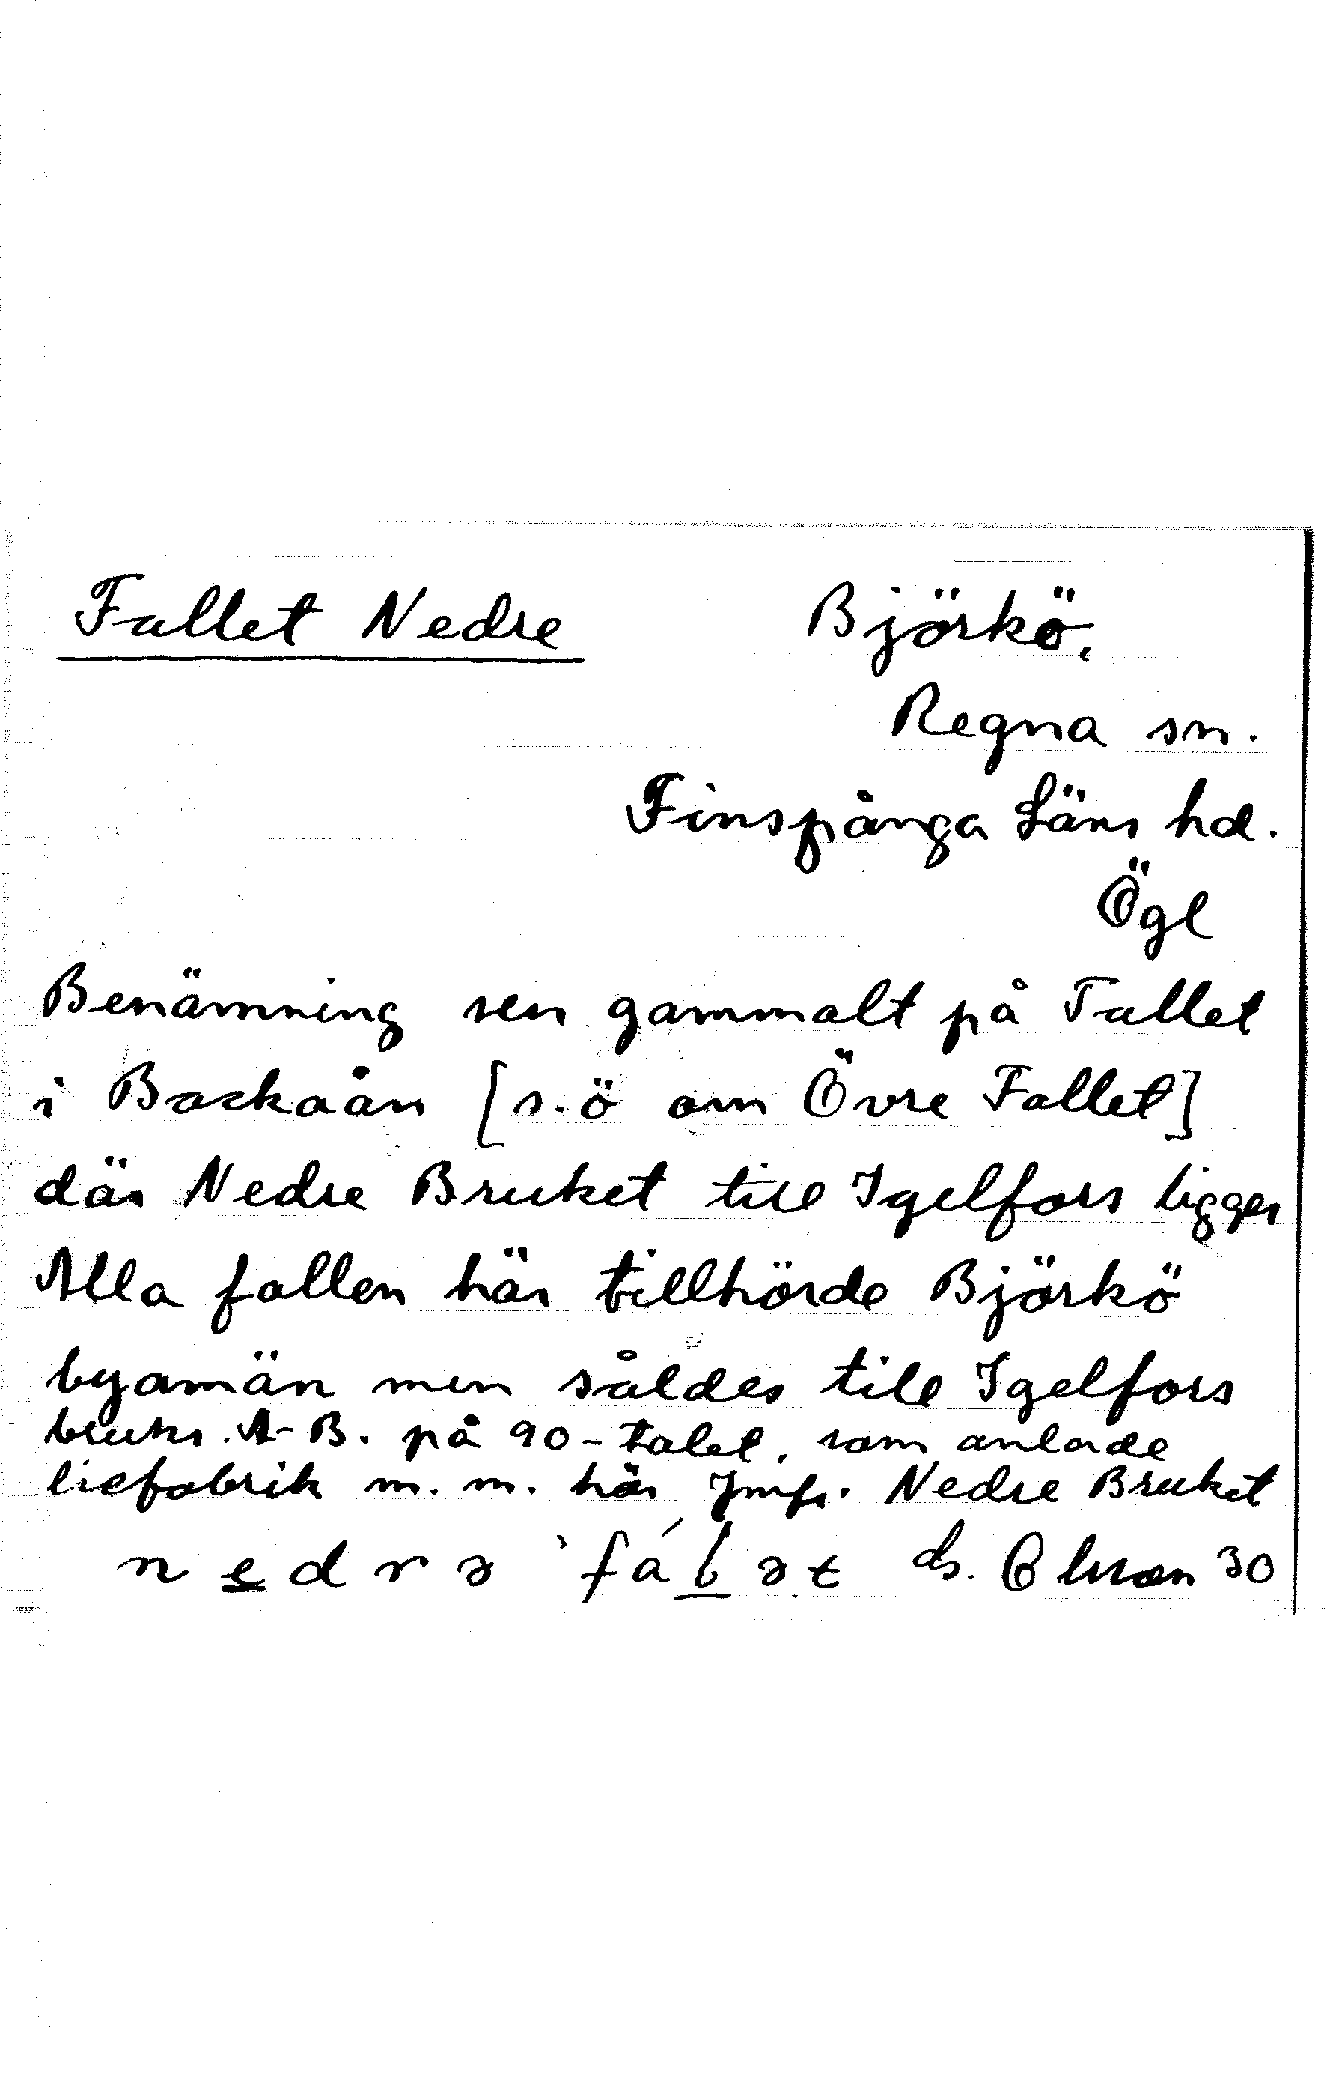 Fallet Nedre Björkö,
Regna sn.
Finspånga Läns hd.
Ögl
Benämning sen gammalt på Fallet
i Backaån [s.ö om Övre Fallet]
där Nedre Bruket till Igelfors ligger
Alla fallen här tillhörde Björkö
byamän men såldes till Igelfors
bruks A-B. på 90-talet, som anlade
liefabrik m.m. här Jmfr. Nedre Bruket
nedrə `fálət Olsson 30